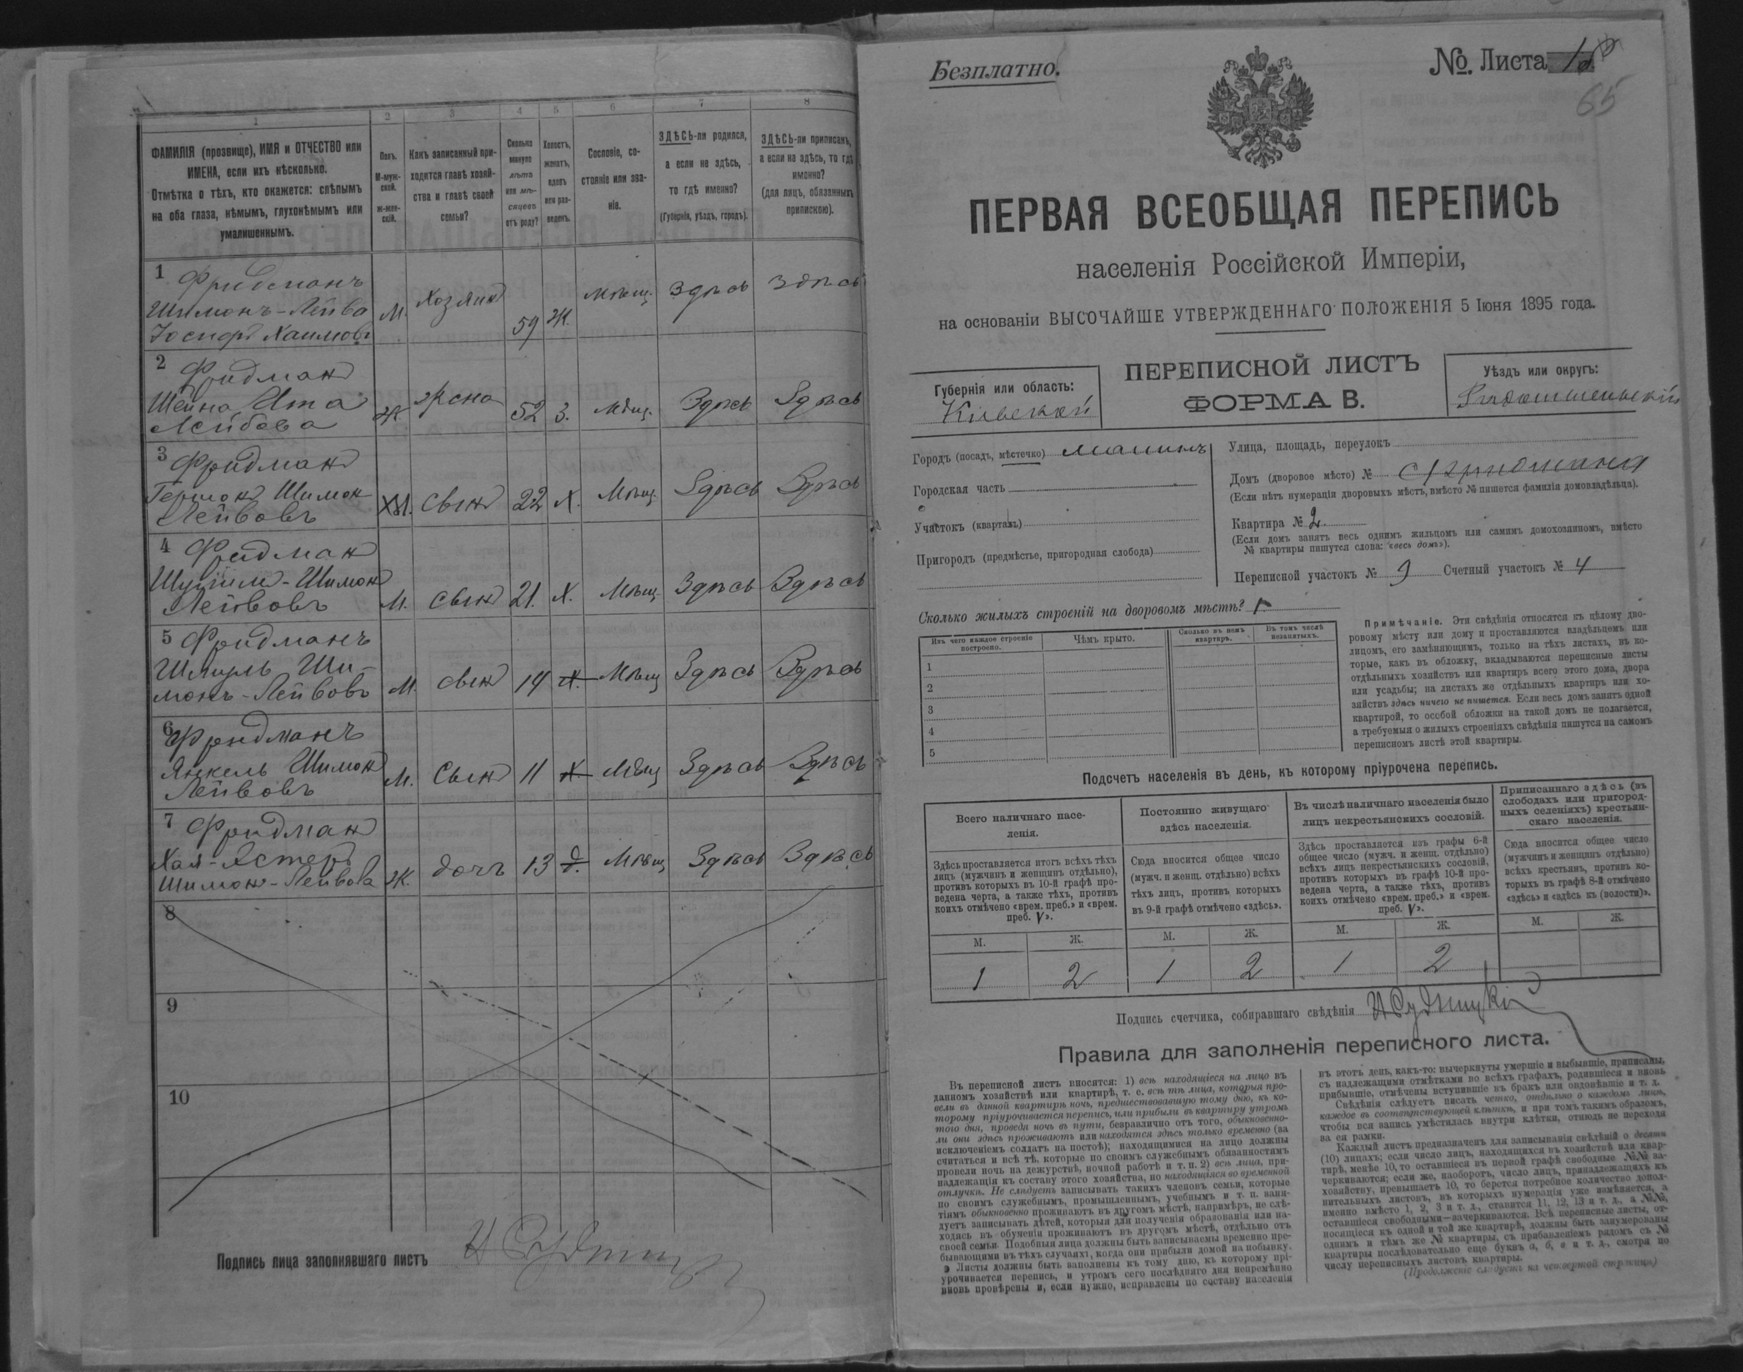 1
2
3
4
5
6
7
8
ФАМИЛІЯ (прозвище), ИМЯ и ОТЧЕСТВО или
ИМЕНА, если ихъ нѣсколько.
Отмѣтка о тѣхъ, кто окажется: слѣпымъ
на оба глаза, нѣмымъ, глухонѣмымъ или
умалишеннымъ.
Полъ.
М-муж-
ской.
Ж-жен-
скій.
Какъ записанный при-
ходится главѣ хозяй-
ства и главѣ своей
семьи?
Сколько
минуло
лѣтъ
или мѣ-
сяцевъ
отъ роду?
Холостъ,
женатъ,
вдовъ
или раз-
веденъ.
Сословіе, со-
стояніе или зва-
ніе.
ЗДѢСЬ-ли родился,
а если не здѣсь,
то гдѣ именно?
(Губернія, уѣздъ, городъ).
ЗДѢСЬ-ли приписанъ,
а если не здѣсь, то гдѣ
именно?
(для лицъ, обязанныхъ
припискою).
1 Фридманъ
Шимонъ-Лейва
Хаимовъ
М. Хозяин 59 Ж. Мѣщ. Здѣсь Здѣсь
2 Фридман
Шейна Ита
Лейбова
Ж жена 52 З. Мѣщ. Здѣсь Здѣсь
3 Фридман
Гершон Шимон
Лейвовъ
М. сын 22 Х. Мѣщ. Здѣсь Здѣсь
4 Фридман
Шимон
Лейвовъ
М. сын 21. Х. Мѣщ. Здѣсь Здѣсь
5 Фридманъ
Шмуль Ши-
монъ-Лейвовъ
М. сын 14 Х. Мѣщ Здѣсь Здѣсь
6 Фридманъ
Янкель Шимон
Лейвовъ
М. Сын 11 Х. Мѣщ Здѣсь Здѣсь
7 Фридман
Хая-Эстер
Шимон-Лейвова
Ж. дочь 13 д. Мѣщ Здѣсь Здѣсь
8
9
10
Подпись лица заполнявшаго листъ
Безплатно.
№. Листа
65
ПЕРВАЯ ВСЕОБЩАЯ ПЕРЕПИСЬ
населенія Россійской Имперіи,
на основаніи ВЫСОЧАЙШЕ УТВЕРЖДЕННАГО ПОЛОЖЕНІЯ 5 Іюня 1895 года.
Губернія или область:
Кіевской
ПЕРЕПИСНОЙ ЛИСТЪ
ФОРМА В.
Уѣздъ или округъ:
Радомышльскій
Городъ (посадъ, мѣстечко) Малинъ
Городская часть
Участокъ (кварталъ)
Пригородъ (предмѣстье, пригородная слобода)
Улица, площадь, переулокъ
Домъ (дворовое мѣсто) №
(Если нѣтъ нумераціи дворовыхъ мѣстъ, вмѣсто № пишется фамилія домовладѣльца).
Квартира № 2
(Если домъ занятъ весь однимъ жильцомъ или самимъ домохозяиномъ, вмѣсто
№ квартиры пишутся слова: «весь домъ»).
Переписной участокъ № 9 Счетный участокъ № 4
Сколько жилыхъ строеній на дворовомъ мѣстѣ?
Изъ чего каждое строеніе
построено.
Чѣмъ крыто.
Сколько въ немъ
квартиръ.
Въ томъ числѣ
незанятыхъ.
1
2
3
4
5
Примѣчаніе. Эти свѣдѣнія относятся къ цѣлому дво-
ровому мѣсту или дому и проставляются владѣльцемъ или
лицомъ, его замѣняющимъ, только на тѣхъ листахъ, въ ко-
торые, какъ въ обложку, вкладываются переписные листы
отдѣльныхъ хозяйствъ или квартиръ всего этого дома, двора
или усадьбы; на листахъ же отдѣльныхъ квартиръ или хо-
зяйствъ здѣсь ничего не пишется. Если весь домъ занятъ одной
квартирой, то особой обложки на такой домъ не полагается,
а требуемыя о жилыхъ строеніяхъ свѣдѣнія пишутся на самомъ
переписномъ листѣ этой квартиры.
Подсчетъ населенія въ день, къ которому пріурочена перепись.
Всего наличнаго насе-
ленія.
Постоянно живущаго
здѣсь населенія.
Въ числѣ наличнаго населенія было
лицъ некрестьянскихъ сословій.
Приписаннаго здѣсь (въ
слободахъ или пригород-
ныхъ селеніяхъ) крестьян-
скаго населенія.
Здѣсь проставляется итогъ всѣхъ тѣхъ
лицъ (мужчинъ и женщинъ отдѣльно),
противъ которыхъ въ 10-й графѣ про-
ведена черта, а также тѣхъ, противъ
коихъ отмѣчено «врем. преб.» и «врем.
преб. V».
Сюда вносится общее число
(мужч. и женщ. отдѣльно) всѣхъ
тѣхъ лицъ, противъ которыхъ
въ 9-й графѣ отмѣчено «здѣсь».
Здѣсь проставляется изъ графы 6-й
общее число (мужч. и женщ. отдѣльно)
всѣхъ лицъ некрестьянскихъ сословій,
противъ которыхъ въ графѣ 10-й про-
ведена черта, а также тѣхъ, противъ
коихъ отмѣчено «врем. преб.» и «врем.
преб. V».
Сюда вносится общее число
(мужчинъ и женщинъ отдѣльно)
всѣхъ крестьянъ, противъ ко-
торыхъ въ графѣ 8-й отмѣчено
«здѣсь» и «здѣсь къ (волости)».
М. Ж. М. Ж. М. Ж. М. Ж.
1 2 1 2 1 2
Подпись счетчика, собиравшаго свѣдѣнія
Правила для заполненія переписного листа.
Въ переписной листъ вносятся: 1) всѣ находящіеся на лицо въ
данномъ хозяйствѣ или квартирѣ, т. е. всѣ тѣ лица, которыя про-
вели въ данной квартирѣ ночь, предшествовавшую тому дню, къ ко-
торому пріурочивается перепись, или прибыли въ квартиру утромъ
того дня, проведя ночь въ пути, безразлично отъ того, обыкновенно-
ли они здѣсь проживаютъ или находятся здѣсь только временно (за
исключеніемъ солдатъ на постоѣ); находящимися на лицо должны
считаться и всѣ тѣ, которые по своимъ служебнымъ обязанностямъ
провели ночь на дежурствѣ, ночной работѣ и т. п. 2) всѣ лица, при-
надлежащія къ составу этого хозяйства, но находившіяся во временной
отлучкѣ. Не слѣдуетъ записывать такихъ членовъ семьи, которые
по своимъ служебнымъ, промышленнымъ, учебнымъ и т. п. заня-
тіямъ обыкновенно проживаютъ въ другомъ мѣстѣ, напримѣръ, не слѣ-
дуетъ записывать дѣтей, которыя для полученія образованія или на-
ходясь въ обученіи проживаютъ въ другомъ мѣстѣ, отдѣльно отъ
своей семьи. Подобныя лица должны быть записываемы временно пре-
бывающими въ тѣхъ случаяхъ, когда они прибыли домой на побывку.
Листы должны быть заполнены къ тому дню, къ которому прі-
урочивается перепись, и утромъ сего послѣдняго дня непремѣнно
вновь провѣрены и, если нужно, исправлены по составу населенія
въ этотъ день, какъ-то: вычеркнуты умершіе и выбывшіе, приписаны,
съ надлежащими отмѣтками во всѣхъ графахъ, родившіеся и вновь
прибывшіе, отмѣчены вступившіе въ бракъ или овдовѣвшіе и т. д.
Свѣдѣнія слѣдуетъ писать четко, отдѣльно о каждомъ лицѣ,
каждое въ соотвѣтствующей клѣткѣ, и при томъ такимъ образомъ,
чтобы вся запись умѣстилась внутри клѣтки, отнюдь не переходя
за ея рамки.
Каждый листъ предназначенъ для записыванія свѣдѣній о десяти
(10) лицахъ; если число лицъ, находящихся въ хозяйствѣ или квар-
тирѣ, менѣе 10, то оставшіеся въ первой графѣ свободные №№ за-
черкиваются; если же, наоборотъ, число лицъ, принадлежащихъ къ
хозяйству, превышаетъ 10, то берется потребное количество допол-
нительныхъ листовъ, въ которыхъ нумерація уже измѣняется, а
именно вмѣсто 1, 2, 3 и т. д., ставится 11, 12, 13 и т. д., а №№,
оставшіеся свободными—зачеркиваются. Всѣ переписные листы, от-
носящіеся къ одной и той же квартирѣ, должны быть занумерованы
однимъ и тѣмъ же № квартиры, съ прибавленіемъ рядомъ съ №
квартиры послѣдовательно еще буквъ а, б, в и т. д., смотря по
числу переписныхъ листовъ квартиры.
(Продолженіе слѣдуетъ на четвертой страницѣ)